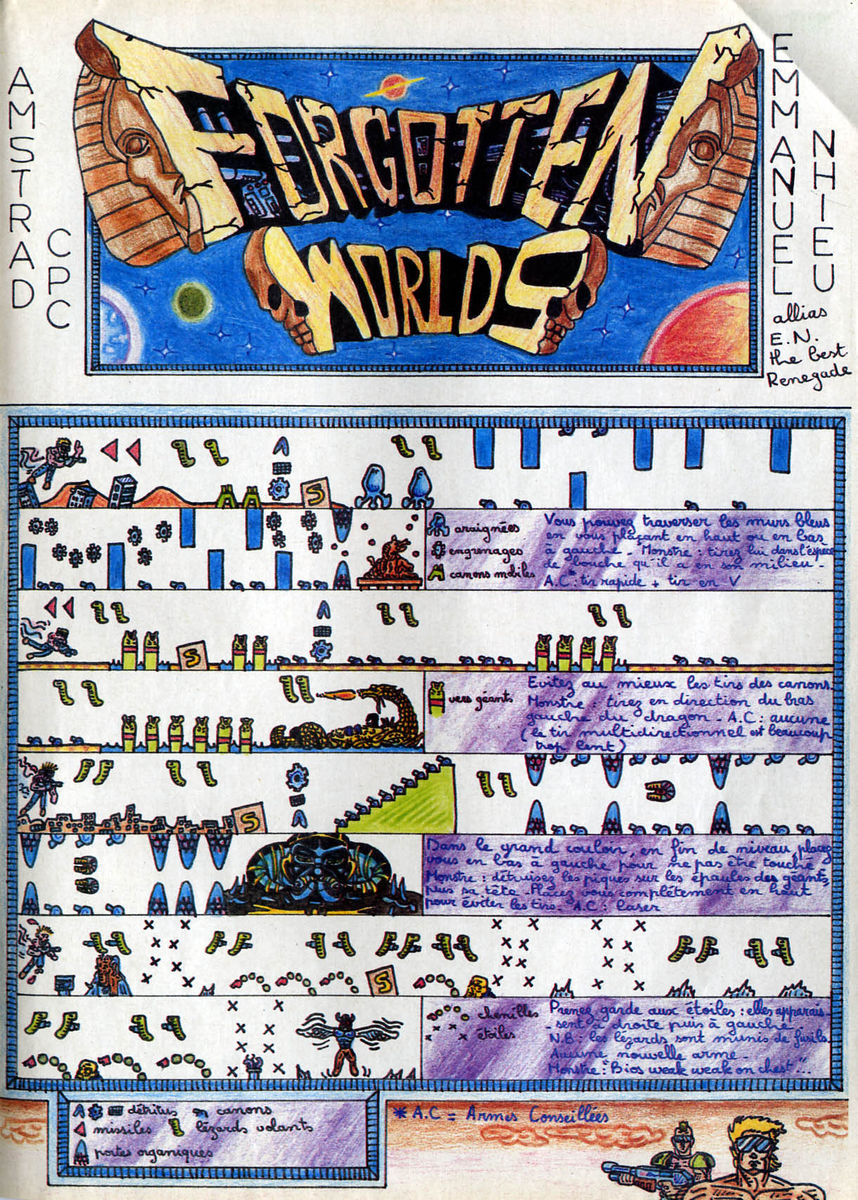 AMSTRAD
CPC
FORGOTTEN
WORLDS
EMMANUEL
NHIEU
allias
E.N.
the best
Renegade
S
araignées
engrenages
canons mobiles
Vous pouvez traverser les murs bleus
en vous plaçant en haut ou en bas
à gauche - Monstre : tirez lui dans l'espece
de bouche qu'il a en son milieu -
A.C : tir rapide + tir en V
S
vers géants
Evitez au mieux les tirs des canons.
Monstre : tirez en direction du bras
gauche du dragon - A.C : aucune
(le tir multidirectionnel est beaucoup
trop lent)
S
Dans le grand couloir, en fin de niveau placez
vous en bas à gauche pour ne pas être touché
Monstre : détruisez les piques sur les épaules des géants,
plus sa tête - Placez vous complètement en haut
pour éviter les tirs - A.C : laser
S
chenilles
étoiles
Prenez garde aux étoiles : elles apparais-
-sent à droite puis à gauche -
N.B : les lézards sont munis de fusils.
Aucune nouvelle arme -
Monstre : Bios weak weak on chest"...
détritus canons
missiles lézards volants
portes organiques
* A.C = Armes Conseillées